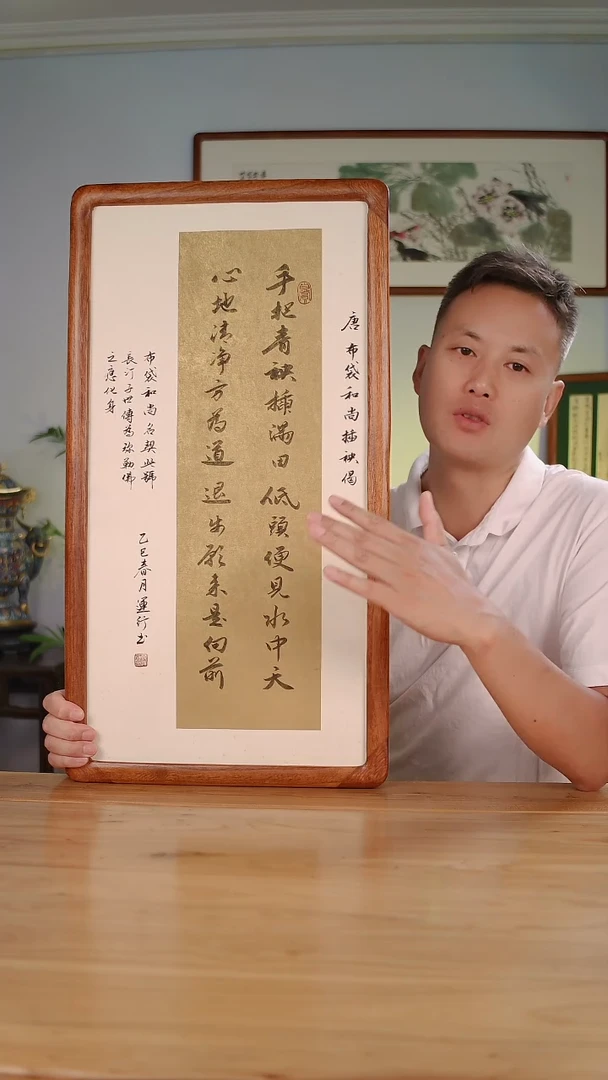 唐布袋和尚插秧偈
手把青秧插滿田低頭便見水中天
心地清净方為道退步願来是向前
布袋和尚名契此號
長汀子世傳為弥勒佛
之應化身
乙巳春月運行书